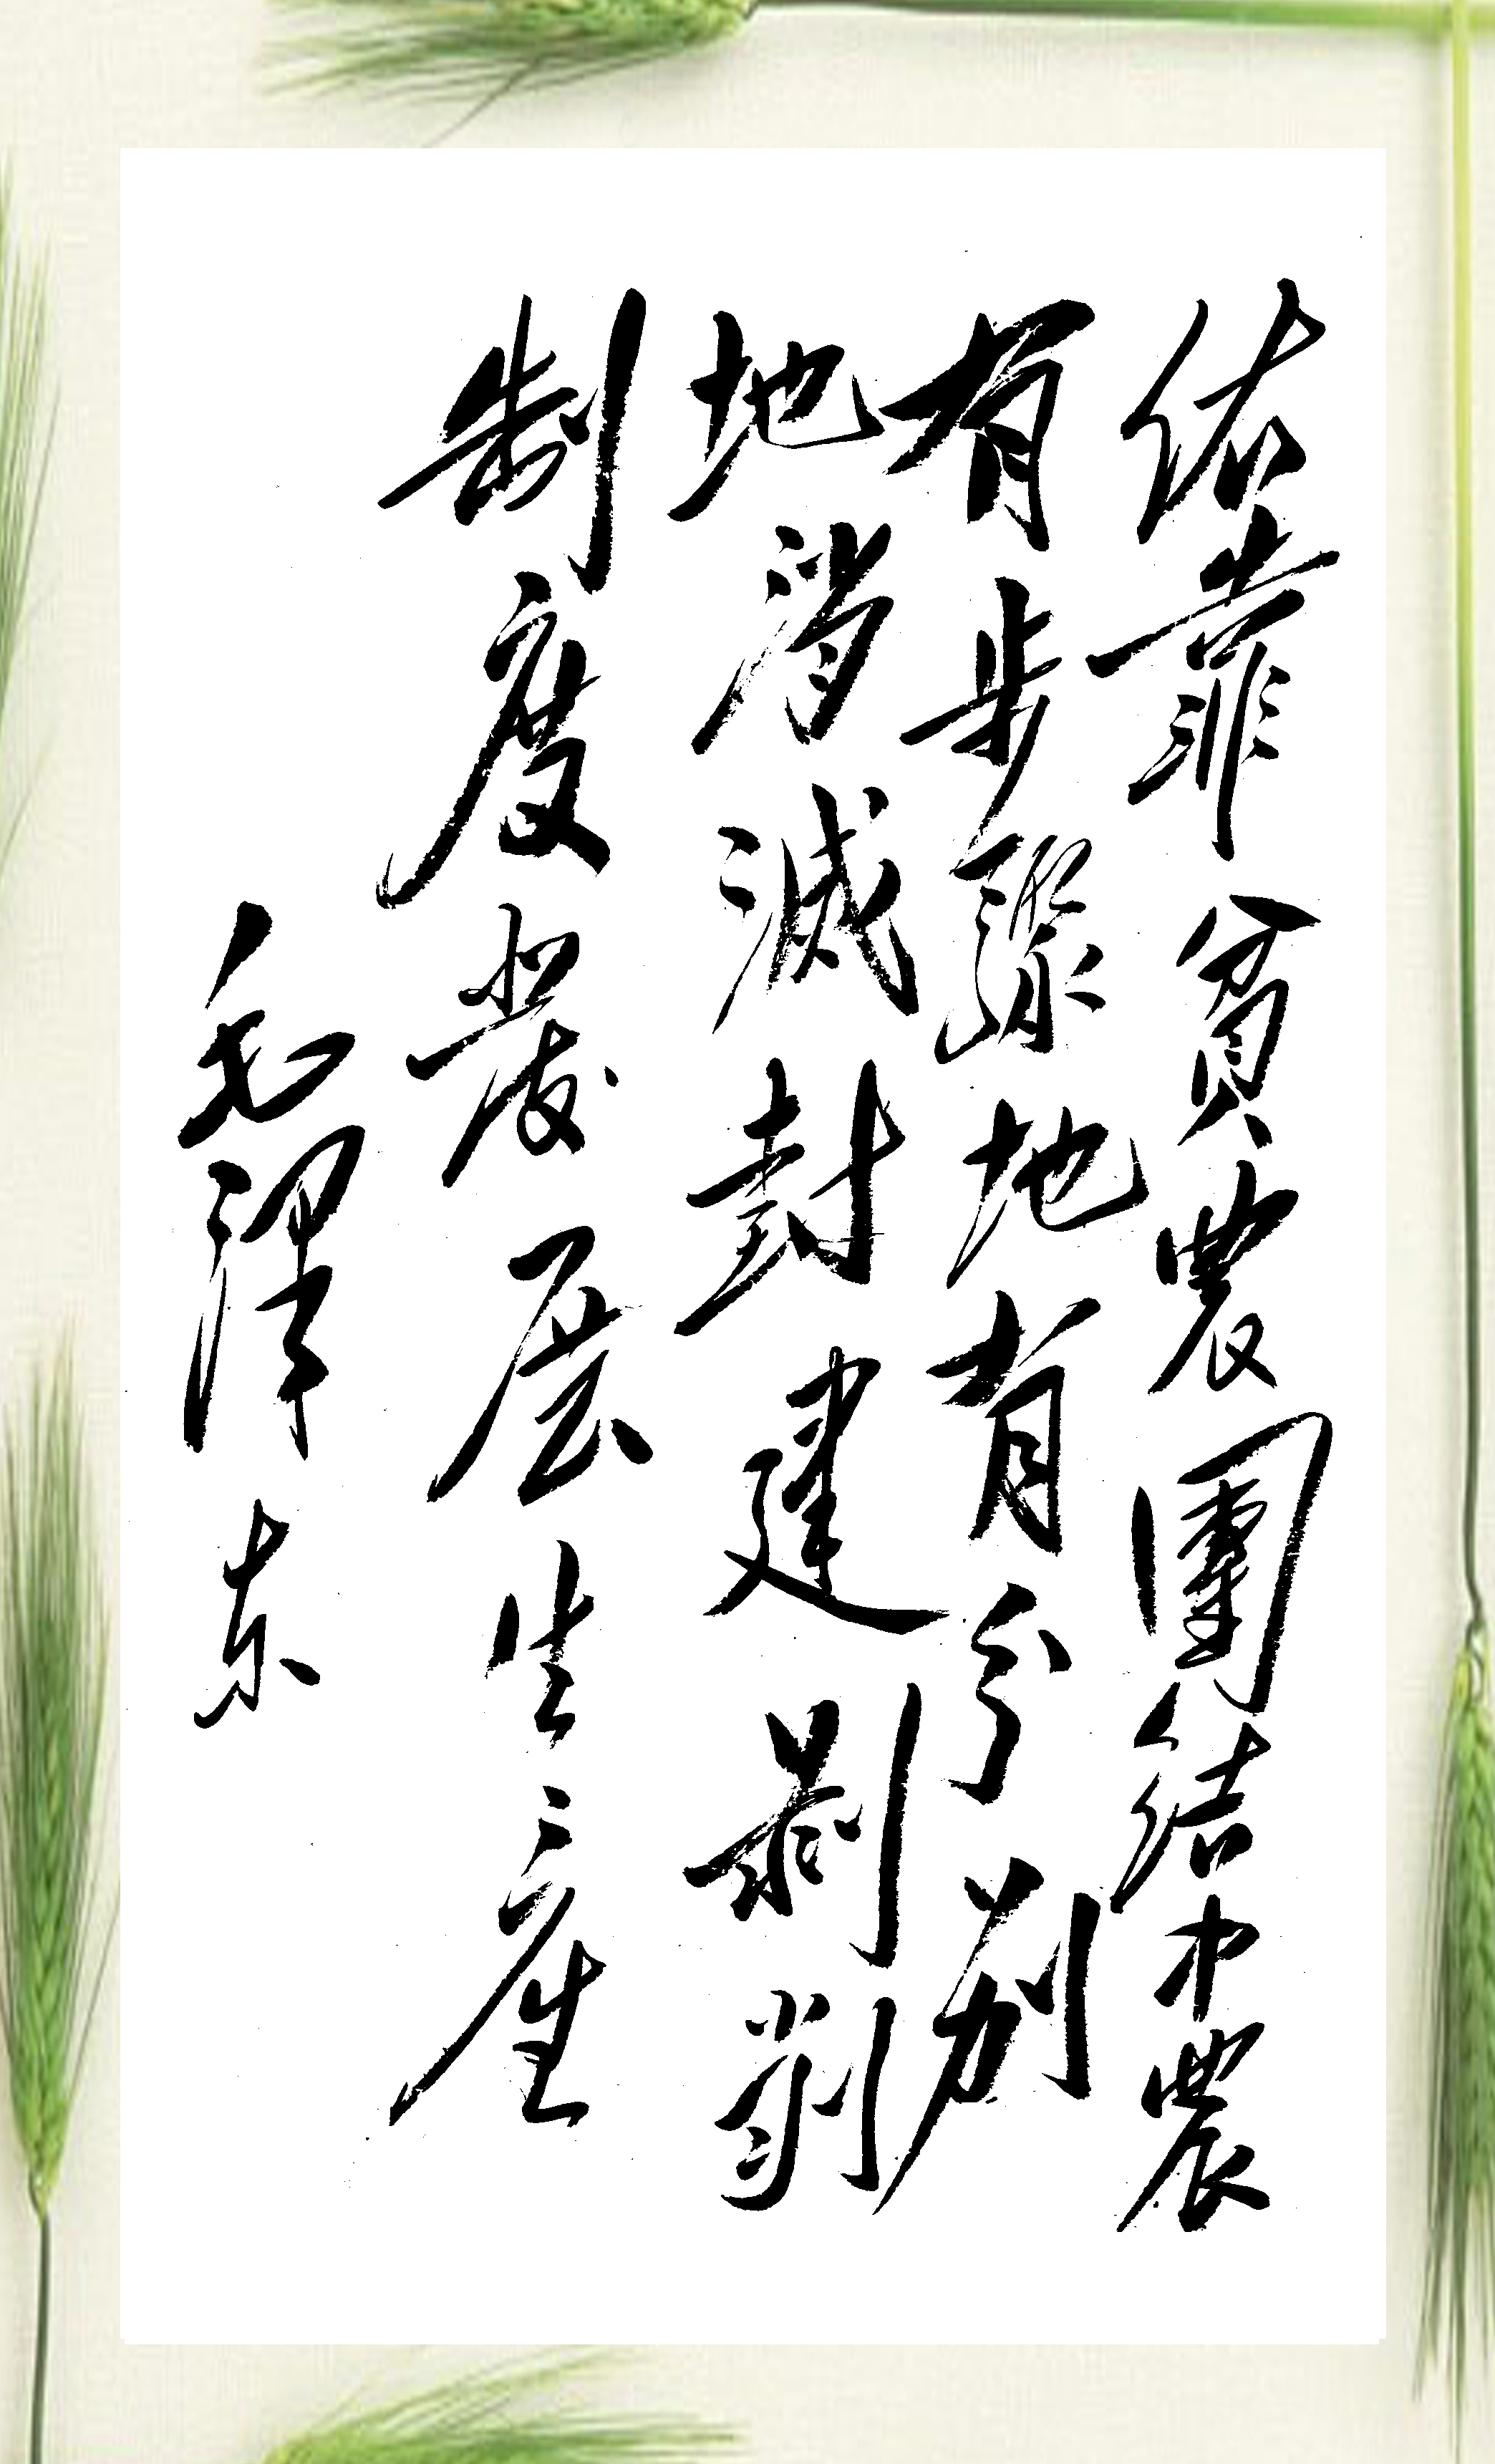 依靠貧農團結中農
有步驟地有分別
地消滅封建剥削
制度發展生産
毛澤东